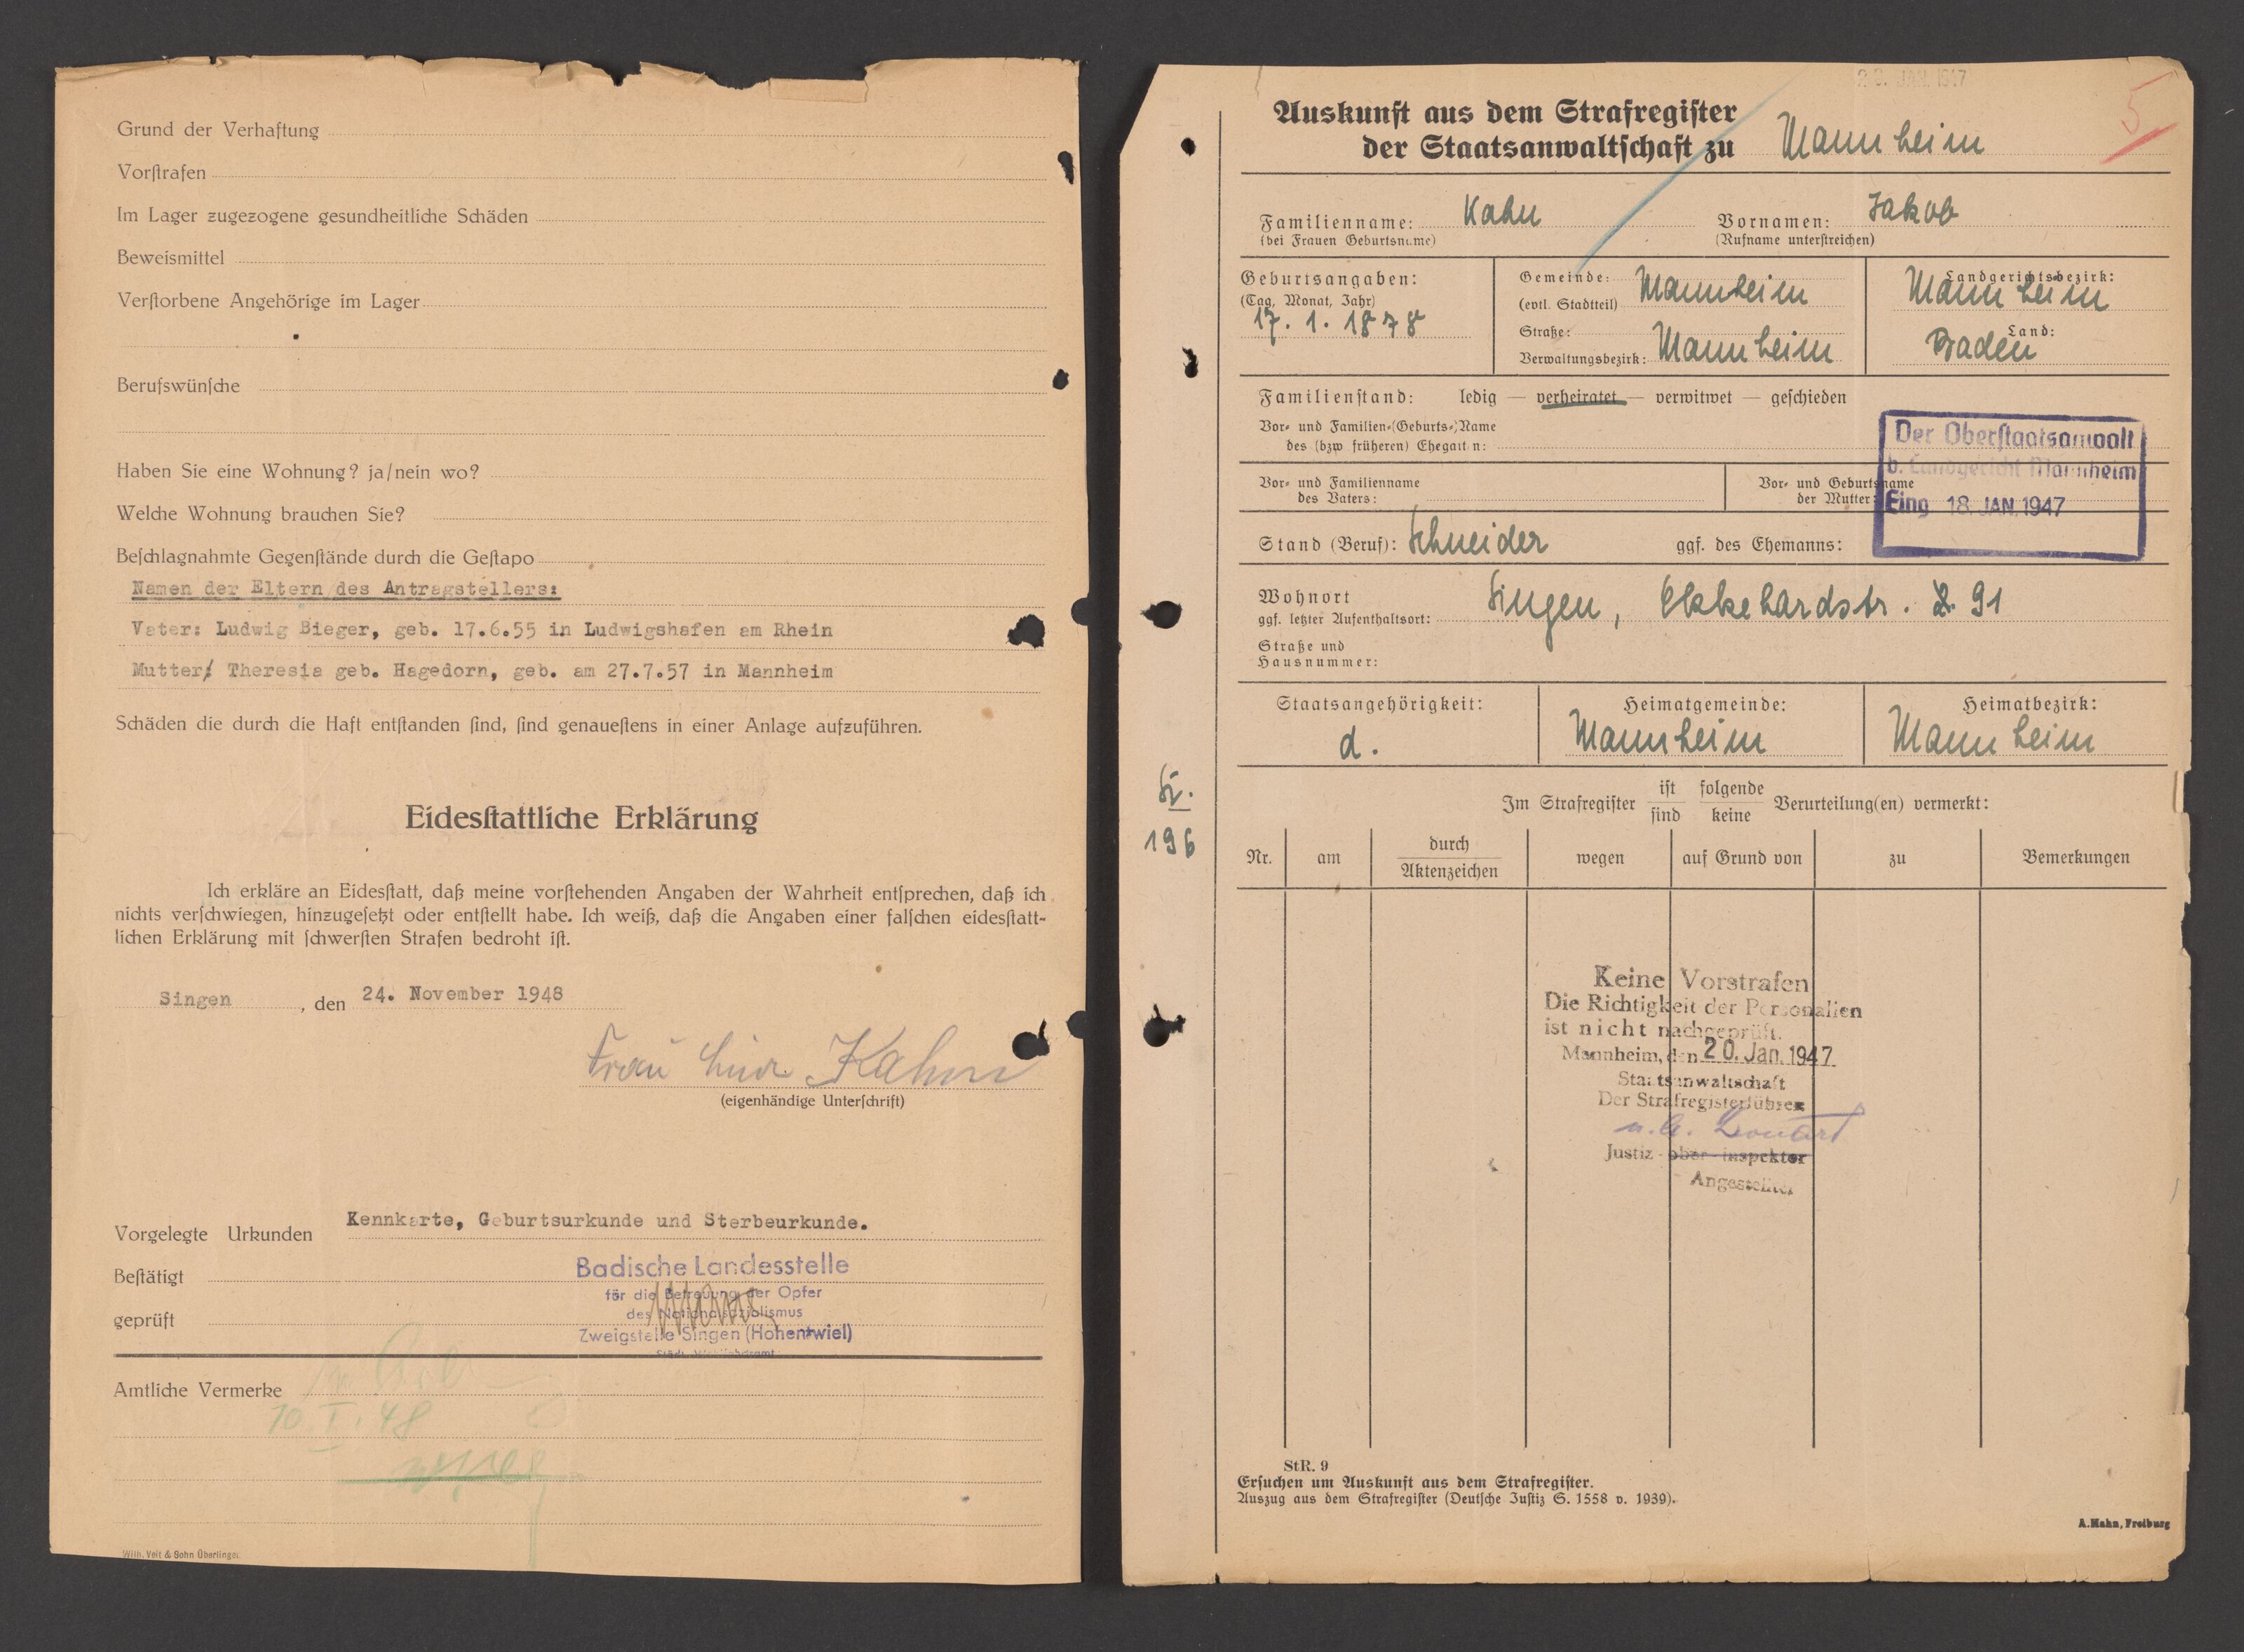 Grund der Verhaftung
Vorstrafen
Im Lager zugezogene gesundheitliche Schäden
Beweismittel
Verstorbene Angehörige im Lager
Berufswünsche
Haben Sie eine Wohnung? ja/nein wo?
Welche Wohnung brauchen Sie?
Beschlagnahmte Gegenstände durch die Gestapo
Namen der Eltern des Antragstellers:
Vater: Ludwig Bieger, geb. 17.6.55 in Ludwigshafen am Rhein
Mutter: Theresia geb. Hagedorn, geb. am 27.7.57 in Mannheim
Schäden die durch die Haft entstanden sind, sind genauestens in einer Anlage aufzuführen.
Eidesstattliche Erklärung
Ich erkläre an Eidesstatt, daß meine vorstehenden Angaben der Wahrheit entsprechen, daß ich
nichts verschwiegen, hinzugesetzt oder entstellt habe. Ich weiß, daß die Angaben einer falschen eidesstatt-
lichen Erklärung mit schwersten Strafen bedroht ist.
Singen, den 24. November 1948
Frau Kahn
(eigenhändige Unterschrift)
Vorgelegte Urkunden Kennkarte, Geburtsurkunde und Sterbeurkunde.
Bestätigt
geprüft
Badische Landesstelle
für die Betreuung der Opfer
des Nationalsozialismus
Zweigstelle Singen (Hohentwiel)
Amtliche Vermerke
10. I. 48
Wilh. Veit & Sohn Überlingen
JAN. 1947
5
Auskunft aus dem Strafregister
der Staatsanwaltschaft zu Mannheim
Familienname: Kahn Vornamen: Jakob
(bei Frauen Geburtsname) (Rufname unterstreichen)
Geburtsangaben:
(Tag, Monat, Jahr)
17. 1. 1878
Gemeinde: Mannheim
(evtl. Stadtteil)
Straße:
Verwaltungsbezirk: Mannheim
Landgerichtsbezirk:
Mannheim
Land:
Baden
Familienstand: ledig — verheiratet — verwitwet — geschieden
Vor- und Familien-(Geburts-)Name
des (bzw früheren) Ehegatten:
Vor- und Familienname
des Vaters:
Vor- und Geburtsname
der Mutter:
Der Oberstaatsanwalt
b. Landgericht Mannheim
Eing 18. JAN. 1947
Stand (Beruf): Schneider ggf. des Ehemanns:
Wohnort
ggf. letzter Aufenthaltsort: Singen, Ekkehardstr. 91
Straße und
Hausnummer:
Staatsangehörigkeit: Heimatgemeinde: Heimatbezirk:
d. Mannheim Mannheim
196
Im Strafregister ist/sind folgende/keine Verurteilung(en) vermerkt:
Nr. am durch/Aktenzeichen wegen auf Grund von zu Bemerkungen
Keine Vorstrafen
Die Richtigkeit der Personalien
ist nicht nachgeprüft.
Mannheim, den 20. Jan. 1947
Staatsanwaltschaft
Der Strafregisterführer
Justiz-ober-inspektor
Angestellter
StR. 9
Ersuchen um Auskunft aus dem Strafregister.
Auszug aus dem Strafregister (Deutsche Justiz S. 1558 v. 1939).
A. Mahn, Freiburg